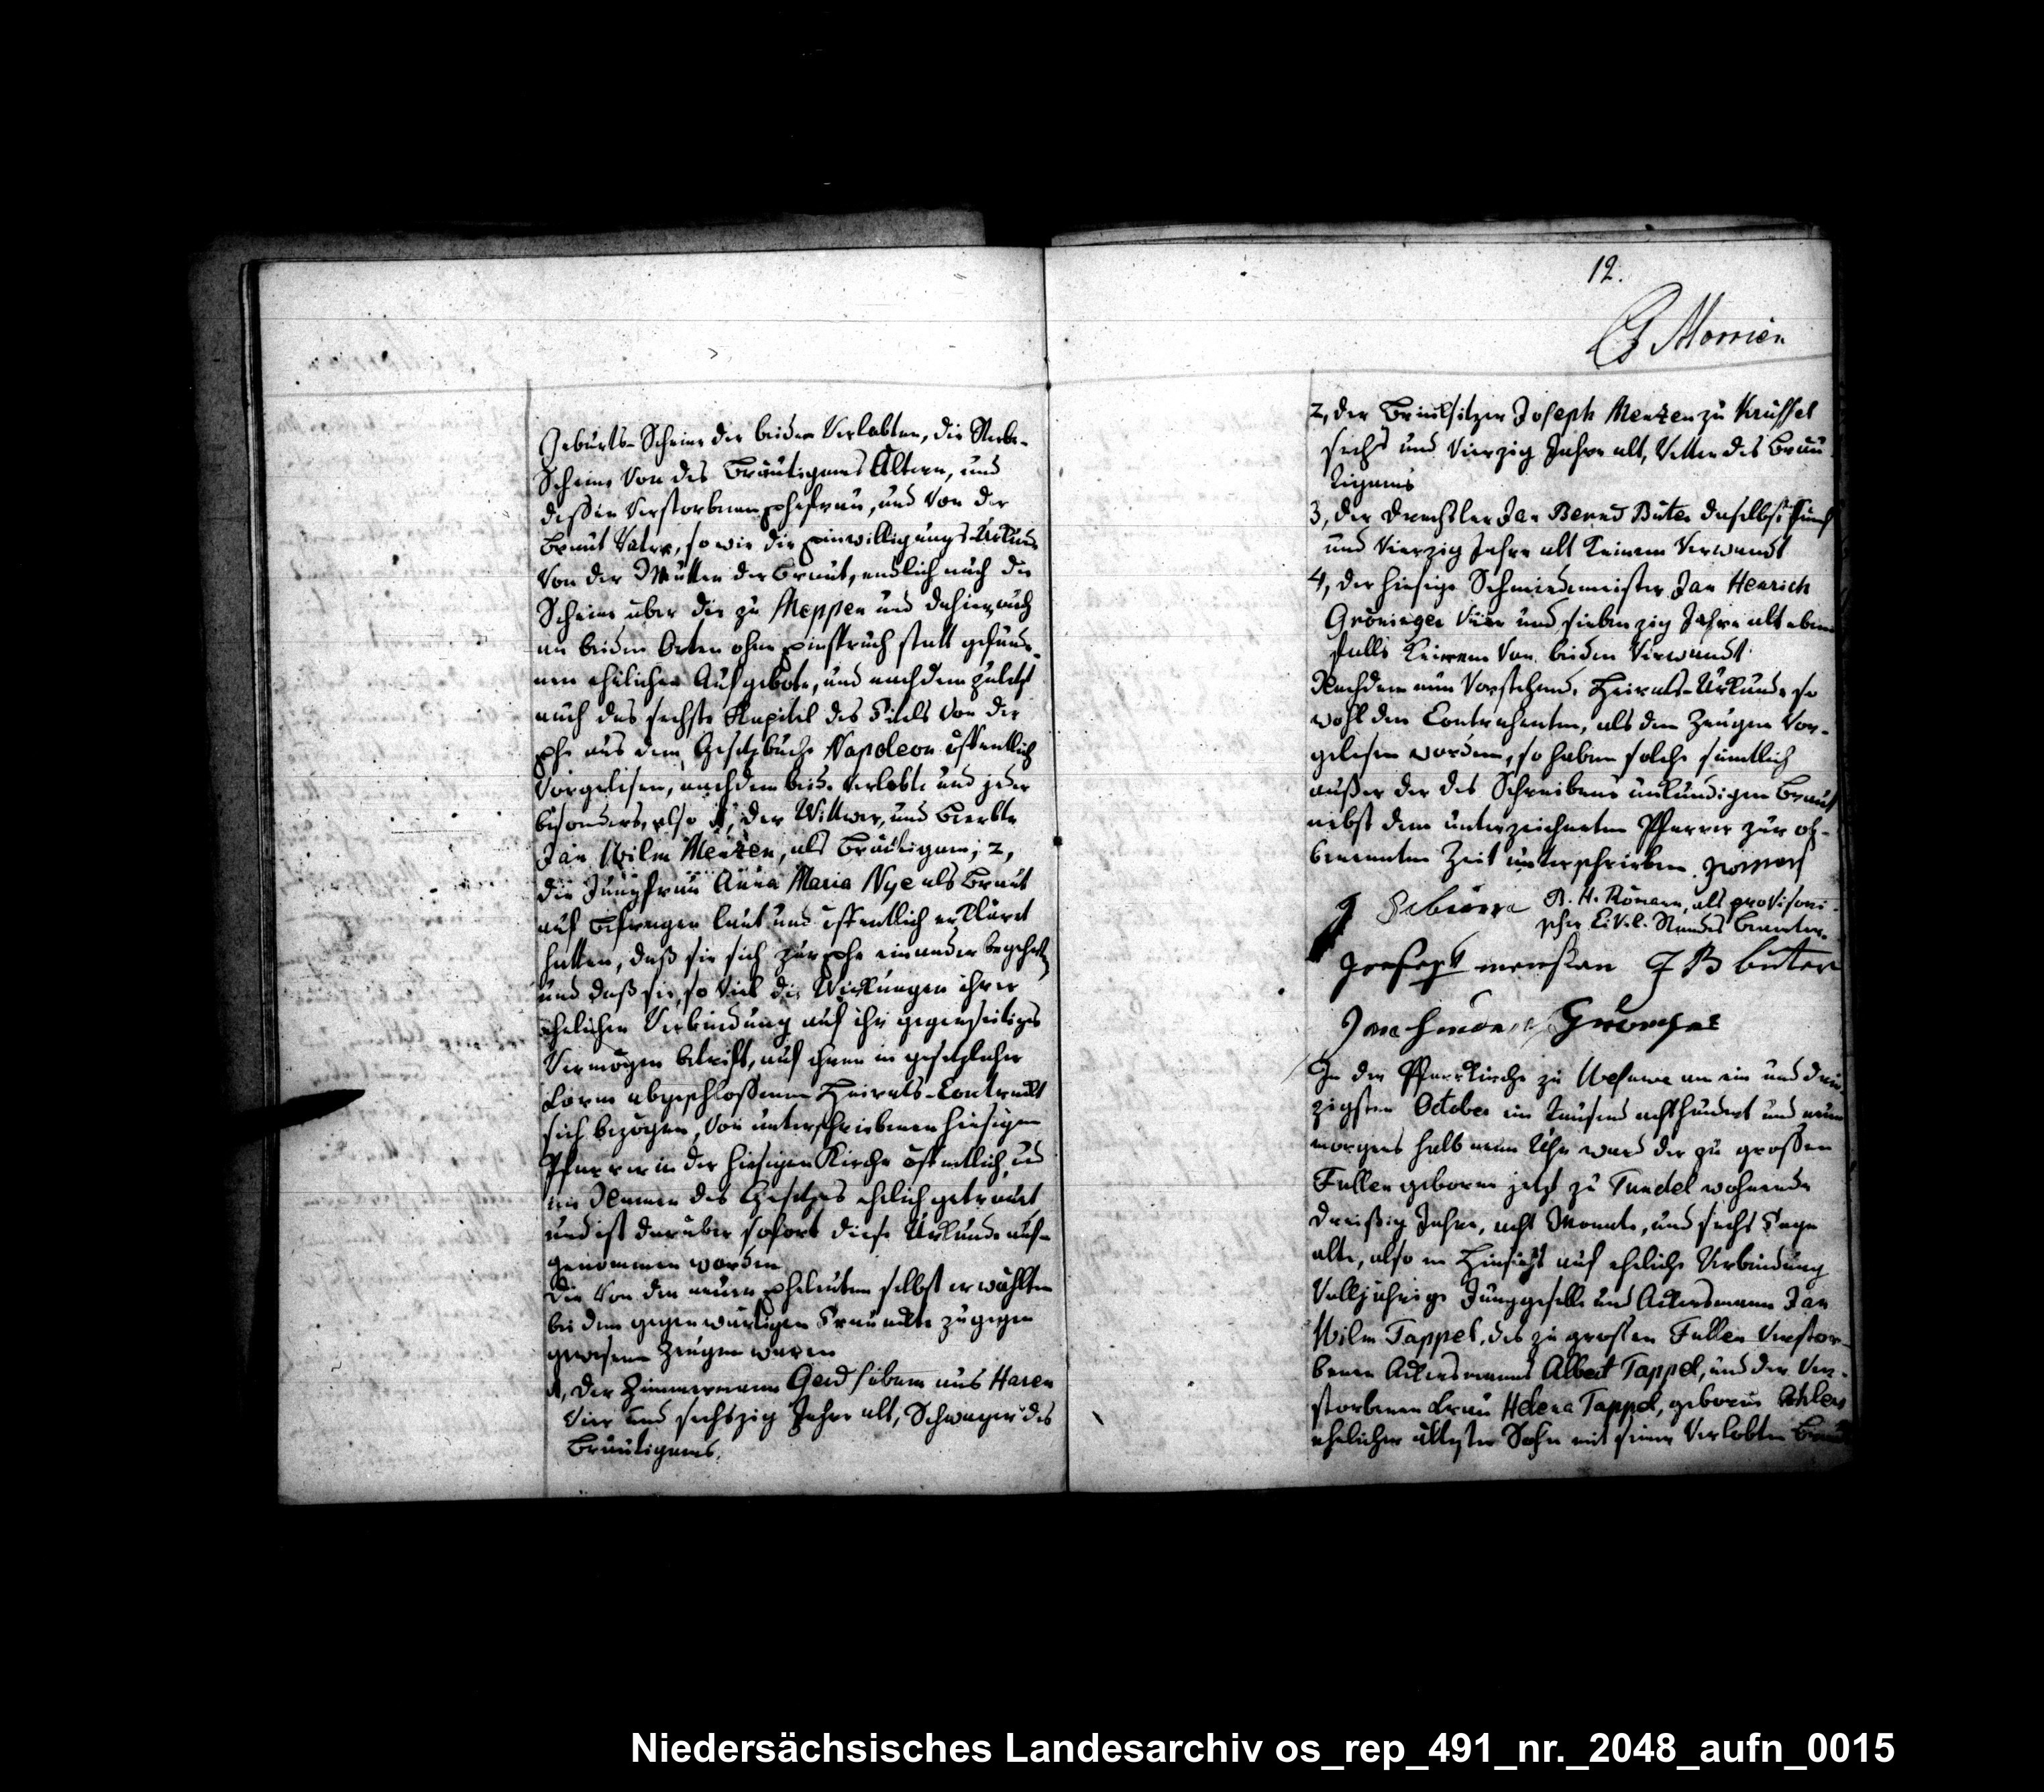 Geburts-Scheine der beiden Verlobten, die Sterbe-
Scheine von des Bräutigams Ältern, und
dessen verstorbenen Ehefrau, und von der
Braut Vater, so wie die Einwilligungs-Urkunde
von der Mutter der Braut, endlich auch die
Scheine über die zu Meppen und dahier, auch
an beiden Orten ohne Einspruch statt gefunde-
nen ehelichen Aufgebote, und nachdem zuletzt
auch das sechste Kapitel des Titels von der
Ehe aus dem Gesetzbuche Napoleon öffentlich
vorgelesen, nachdem beide Verlobte und jeder
besonders, also 1, der Wittwer, und Beerbte
Jan Wilm Menzen, als Bräutigam; 2,
die Jungfrau Anna Maria Nye als Braut
auf Befragen laut und öffentlich erklärt
hatten, daß sie sich zur Ehe einander begehrten
und daß sie, so viel die Wirkungen ihrer
ehelichen Verbindung auf ihr gegenseitiges
Vermögen betrift, auf ihren in gesetzlicher
Form abgeschlossenen Heirats-Contrackt
sich bezögen, von unterschriebenen hiesigen
Pfarrer in der hiesigen Kirche öffentlich, und
im Namen des Gesetzes ehelich getrauet
und ist darüber sofort diese Urkunde auf-
genommen worden
Die von den neuen Eheleuten selbst erwählten
bei dem gegenwärtigen Trauackte zugegen
gewesene Zeugen waren
1, der Zimmermann Gerd aus Haren
vier und sechszig Jahre alt, Schwager des
Bräutigams.
12.
Morrien
2, der Brinksitzer Joseph Menzen zu Krüssel
sechs und vierzig Jahre alt, Vetter des Bräu-
tigams
3, der Drechsler Jan Bernd Büter daselbst fünf
und vierzig Jahre alt keinem verwandt
4, der hiesige Schmiedemeister Jan Henrich
Gröninger vier und siebenzig Jahre alt eben-
falls keinem von beiden verwandt.
Nachdem nun vorstehende Heirats-Urkunde so
wohl den Contrahenten, als den Zeugen vor-
gelesen worden, so haben solche sämtlich
außer der des Schreibens unkundigen Braut
nebst dem unterzeichneten Pfarrer zur ob-
benannten Zeit unterschrieben.
B. H. Römann, als provisori-
scher Civil-Standes Beamter.
Joseph menssen J B büter
Jan
In der Pfarrkirche zu Wesuwe am ein und drei-
zigsten October ein tausend achthundert und neun
morgens halb neun Uhr ward der zu grossen
Fullen geborne jetzt zu Tundel wohnende
dreißig Jahre, acht Monate, und sechs Tage
alte, also in Hinsicht auf eheliche Verbindung
volljährige Junggeselle und Ackersmann Jan
Wilm Tappel, des zu grossen Fullen verstor-
benen Ackersmanns Albert Tappel, und der ver-
storbenen Frau Helena Tappel, geborne Ahlers
ehelicher ältester Sohn mit seiner verlobten Braut
Niedersächsisches Landesarchiv os_rep_491_nr._2048_aufn_0015